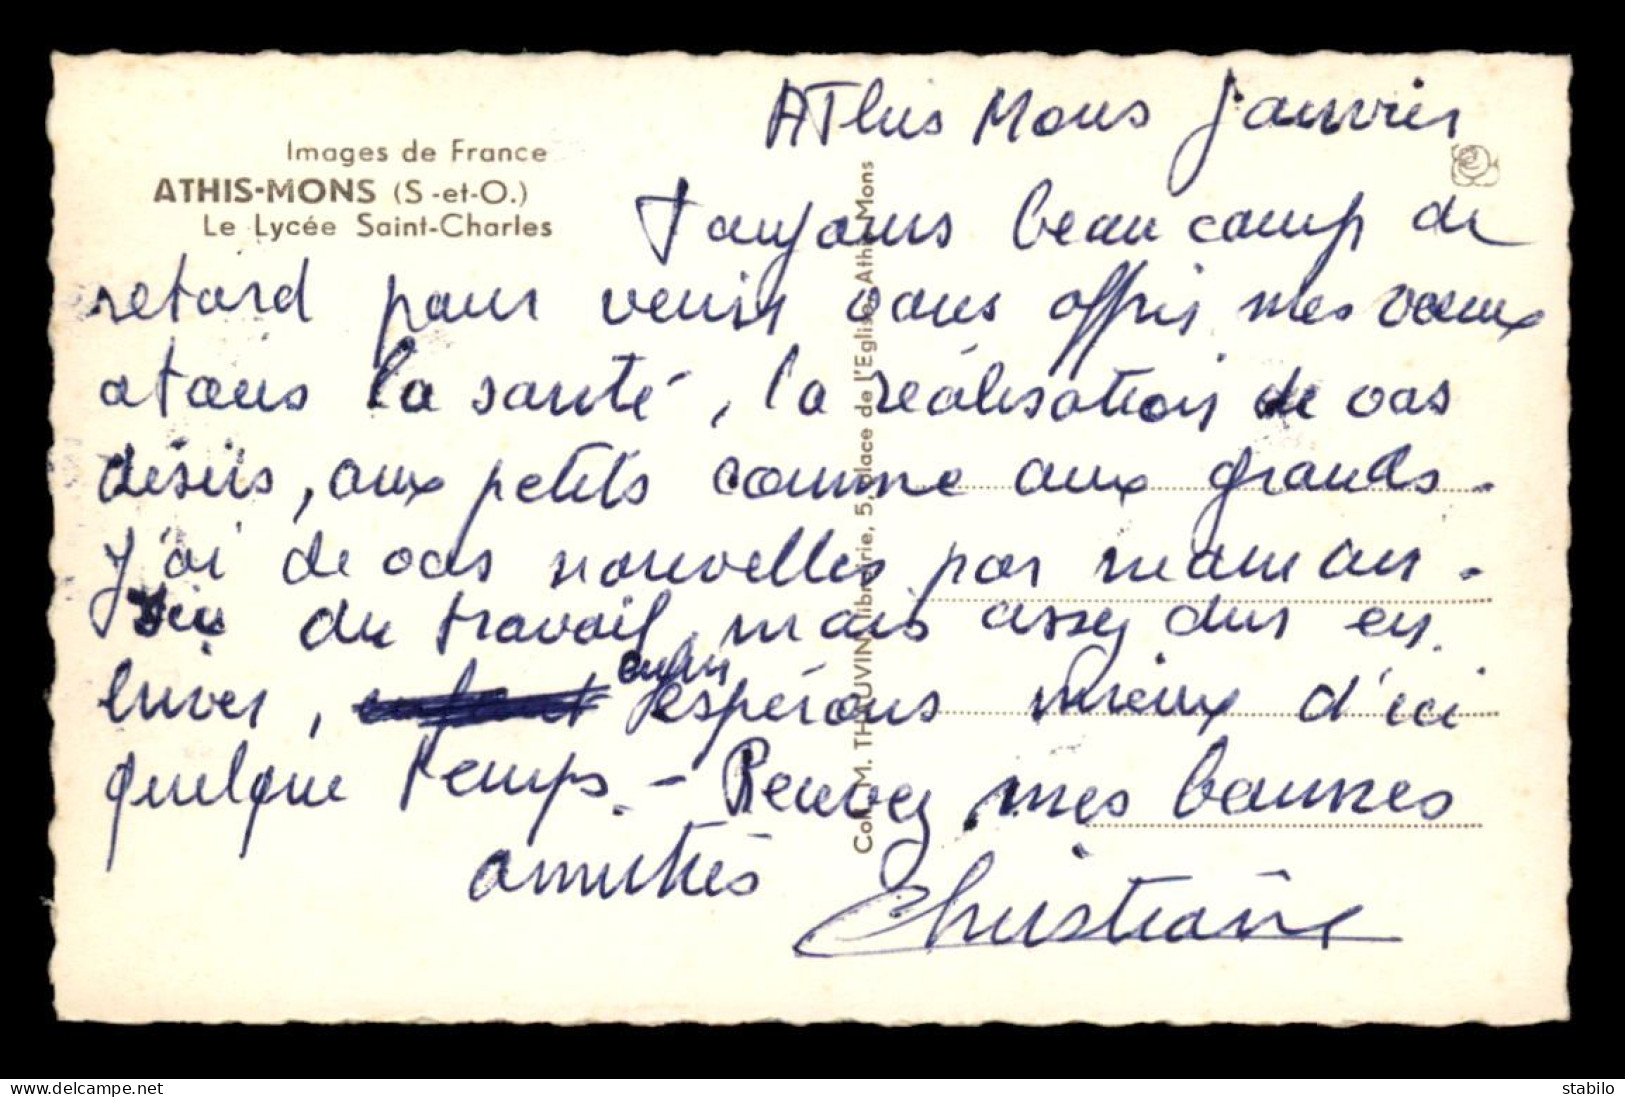 Images de France
ATHIS-MONS (S-et-O.)
Le Lycée Saint-Charles
Athis Mons Janvier
Toujours beaucoup de
retard pour venir vous offrir mes voeux
a tous la santé, la réalisation de vos
désirs, aux petits comme aux grands.
J'ai de vos nouvelles par maman.
du travail, mais assez dur en
hiver, enfin espérons mieux d'ici
quelque temps. - Recevez mes bonnes
amitiés
Christiane
Coll. M. THOUVIN, librairie, 5, place de l'Eglise, Athis-Mons
www.delcampe.net
stabilo